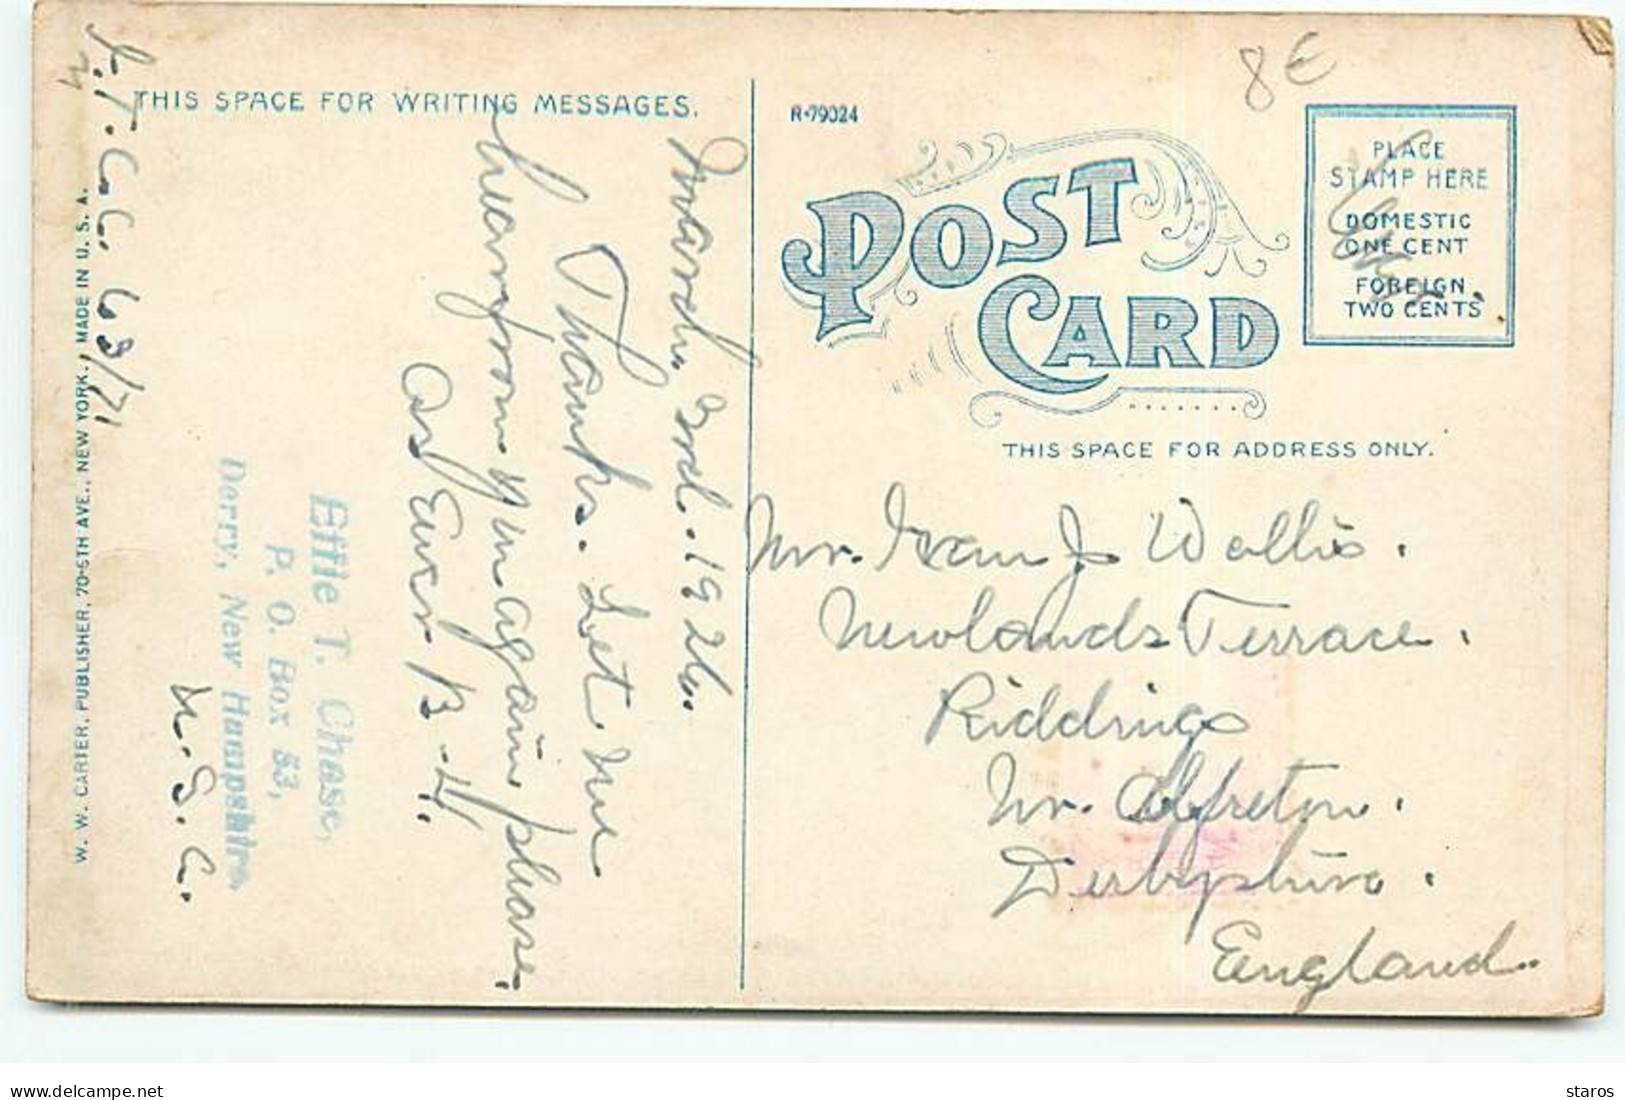 THIS SPACE FOR WRITING MESSAGES.
March. 3rd. 1926.
Thanks. Let me
hear from you again please.
As Ever B-4.
Effie T. Chase,
P. O. Box 53,
Derry, New Hampshire,
U. S. A.
I.T.C.C. 63/71
W. W. CARTER, PUBLISHER, 70-5TH AVE., NEW YORK. MADE IN U. S. A.
R-79024
8€
POST CARD
PLACE
STAMP HERE
DOMESTIC
ONE CENT
FOREIGN
TWO CENTS
THIS SPACE FOR ADDRESS ONLY.
Mr. Ivan J. Wallis.
Newlands Terrace.
Riddings
Nr. Alfreton.
Derbyshire.
England.
Delcampe.net
staros